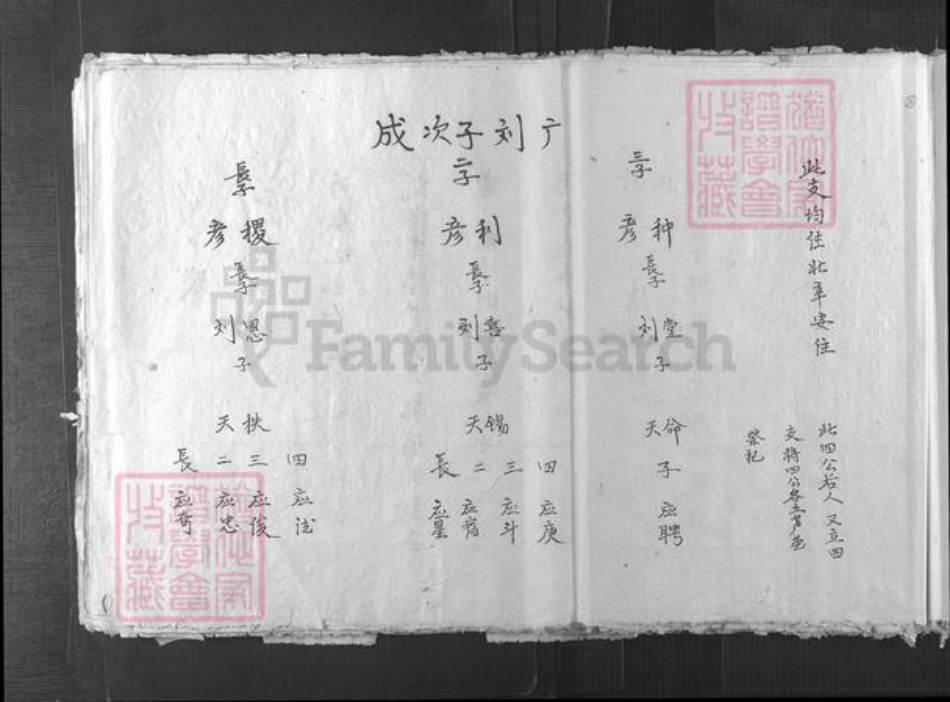 成次子刘广
長子
彦稷
長子
刘恩
子
天秩
長 二 三 四
应奇 应忠 应俊 应
二子
彦利
長子
刘喜
子
天锡
長 二 三 四
应星 应宿 应斗 应庚
三子
彦种
長子
刘堂
子
天命
子
应聘
此支均住北辛安住
此四公后人又立四
支将四公各立
FamilySearch
收藏
譜學會
收藏
譜學會